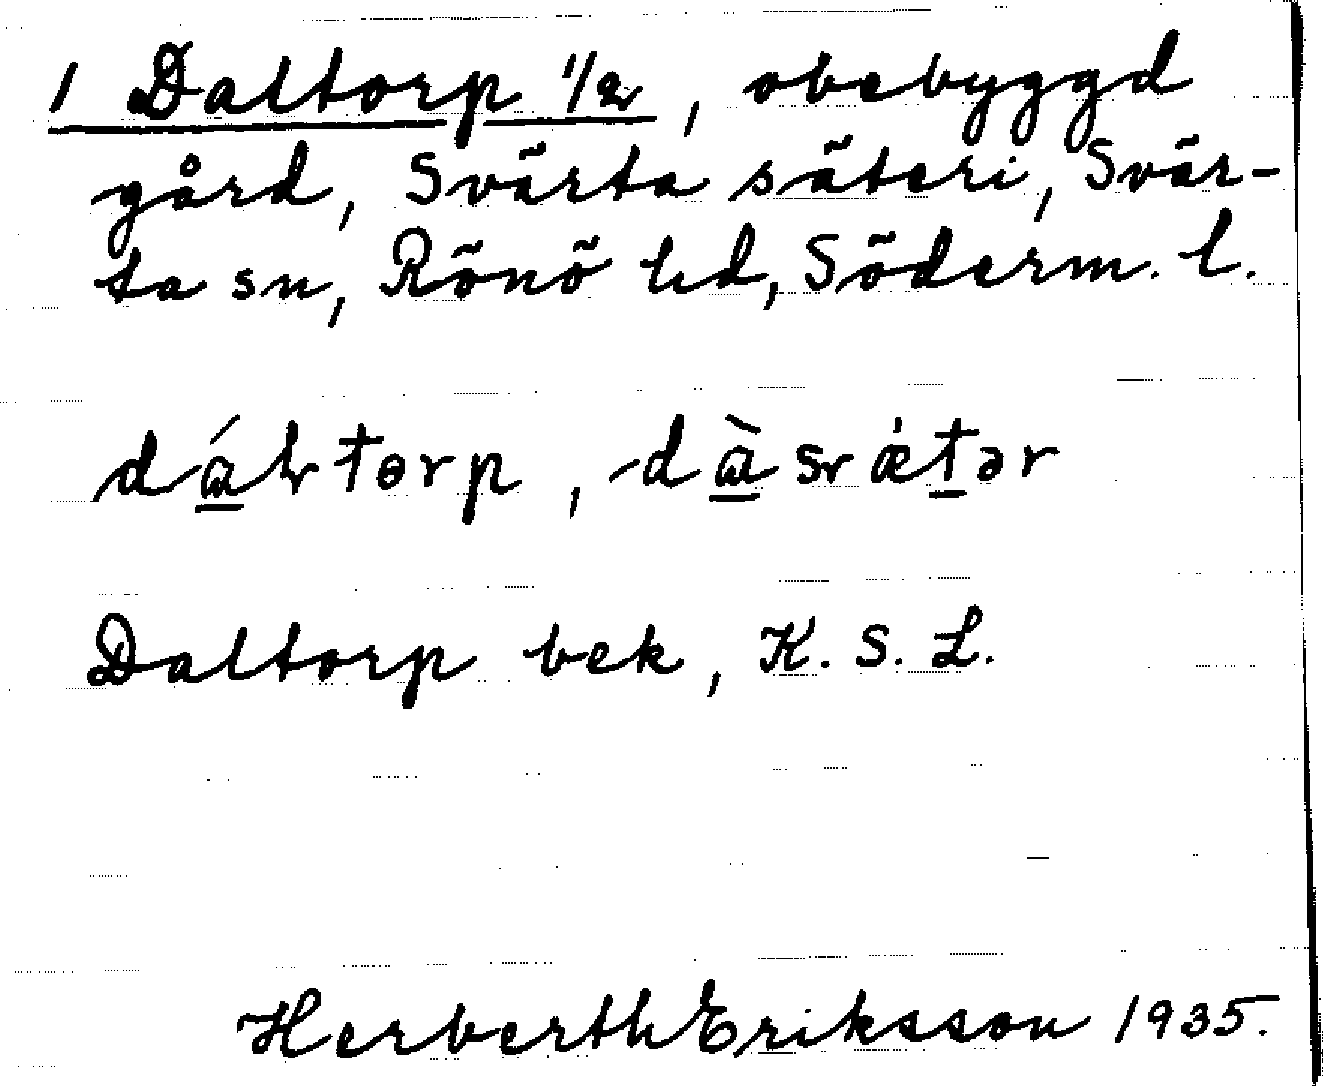 1 Daltorp 1/2, obebyggd
gård, Svärta säteri, Svär-
ta sn, Rönö hd, Söderm. l.
Daltorp bek, K. S. L.
Herberth Eriksson 1935.